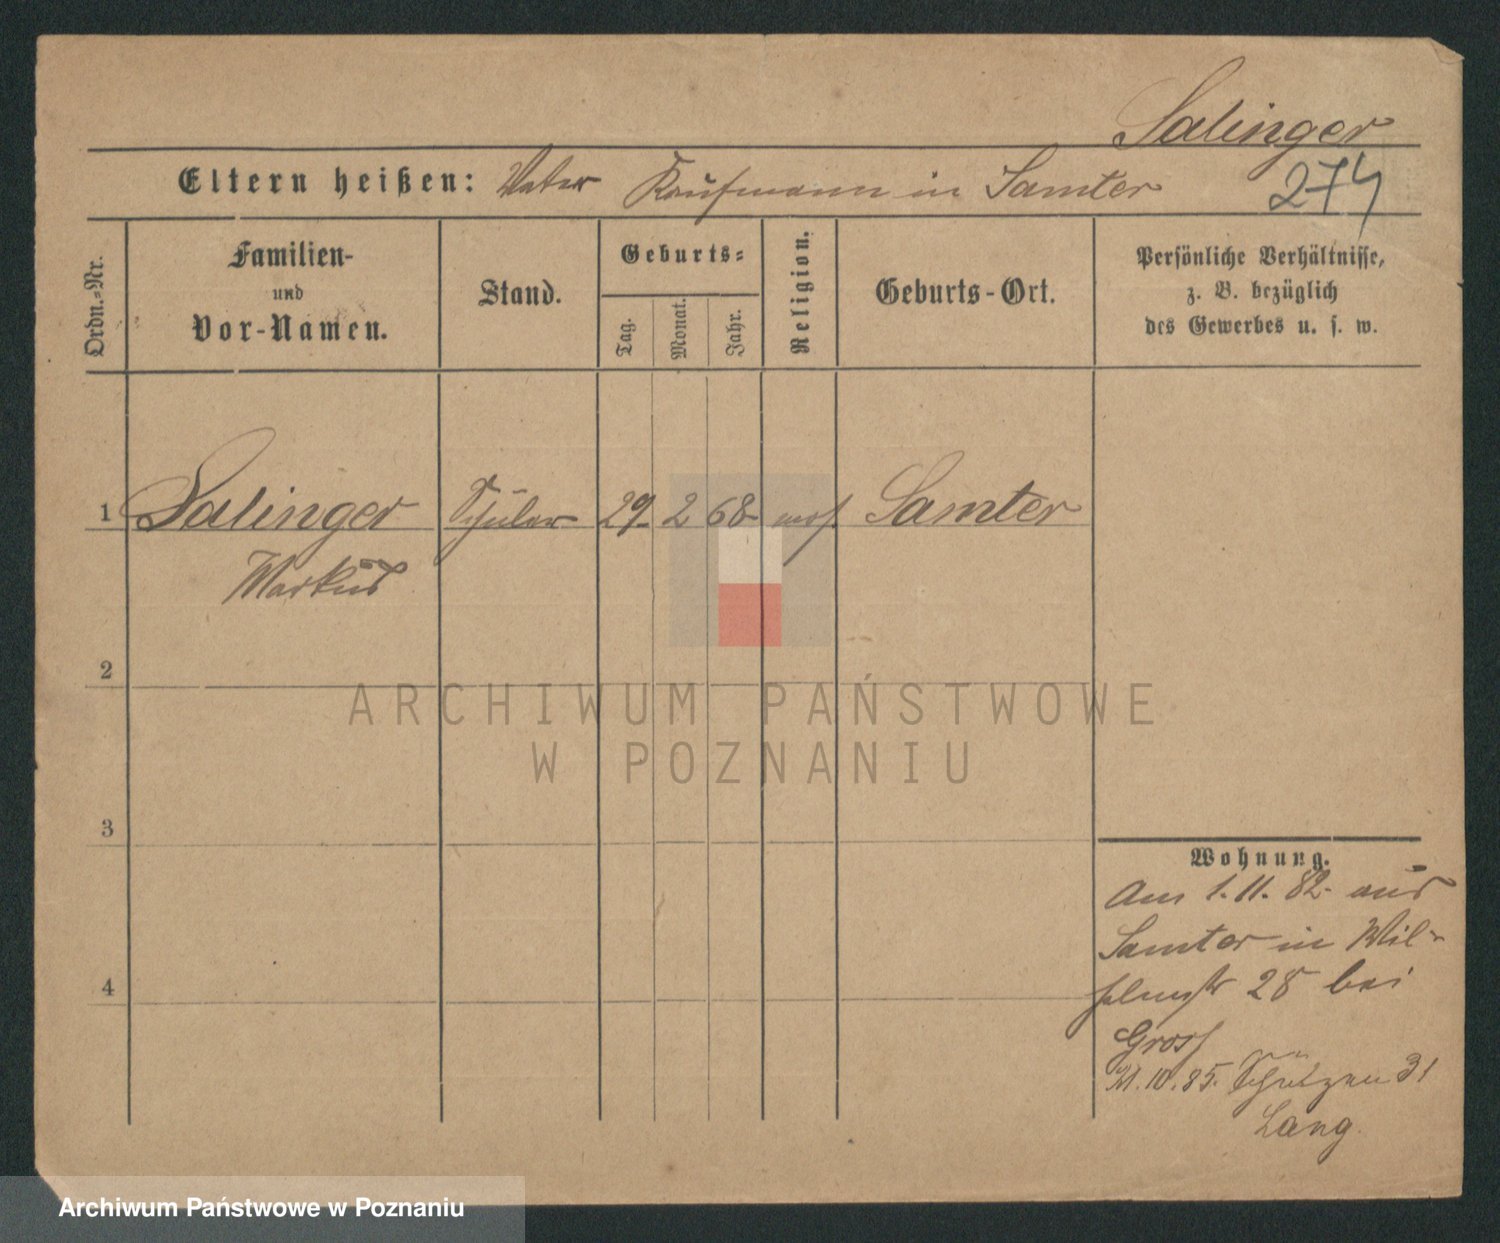 Salinger
274
Eltern heißen: Vater Kaufmann in Samter
Ordn.-Nr.
Familien-
und
Vor-Namen.
Stand.
Geburts-
Tag.
Monat.
Jahr.
Religion.
Geburts-Ort.
Persönliche Verhältnisse,
z. B. bezüglich
des Gewerbes u. s. w.
1 Salinger Schüler 29 2 68 mos. Samter
Markus
2
3
4
ARCHIWUM PAŃSTWOWE
W POZNANIU
Wohnung.
Am 1.11.82. aus
Samter in Wil-
helmstr 28 bei
Gross
21.10.85. Schützen 31
Lang.
Archiwum Państwowe w Poznaniu